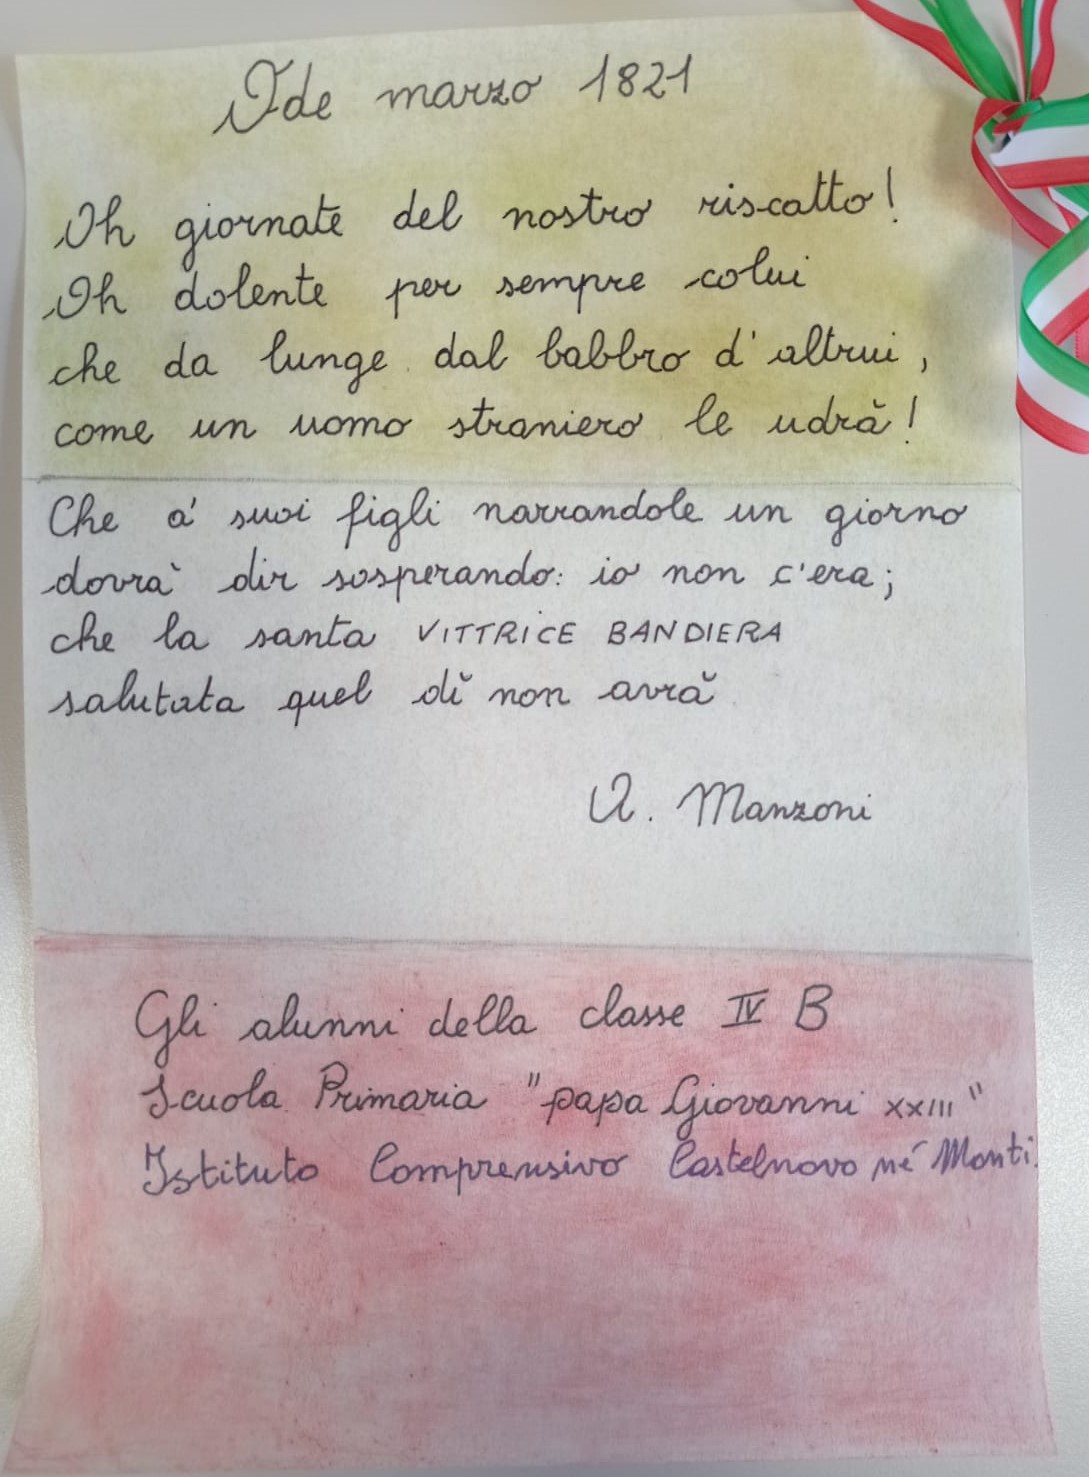 Ode marzo 1821
Oh giornate del nostro riscatto!
Oh dolente per sempre colui
che da lunge dal babbro d'altrui,
come un uomo straniero le udrà!
Che a' suoi figli narrandole un giorno
dovrà dir sosperando: io non c'era;
che la santa VITTRICE BANDIERA
salutata quel dì non avrà
A. Manzoni
Gli alunni della classe IV B
Scuola Primaria "papa Giovanni XXIII"
Istituto Comprensivo Castelnovo né Monti.